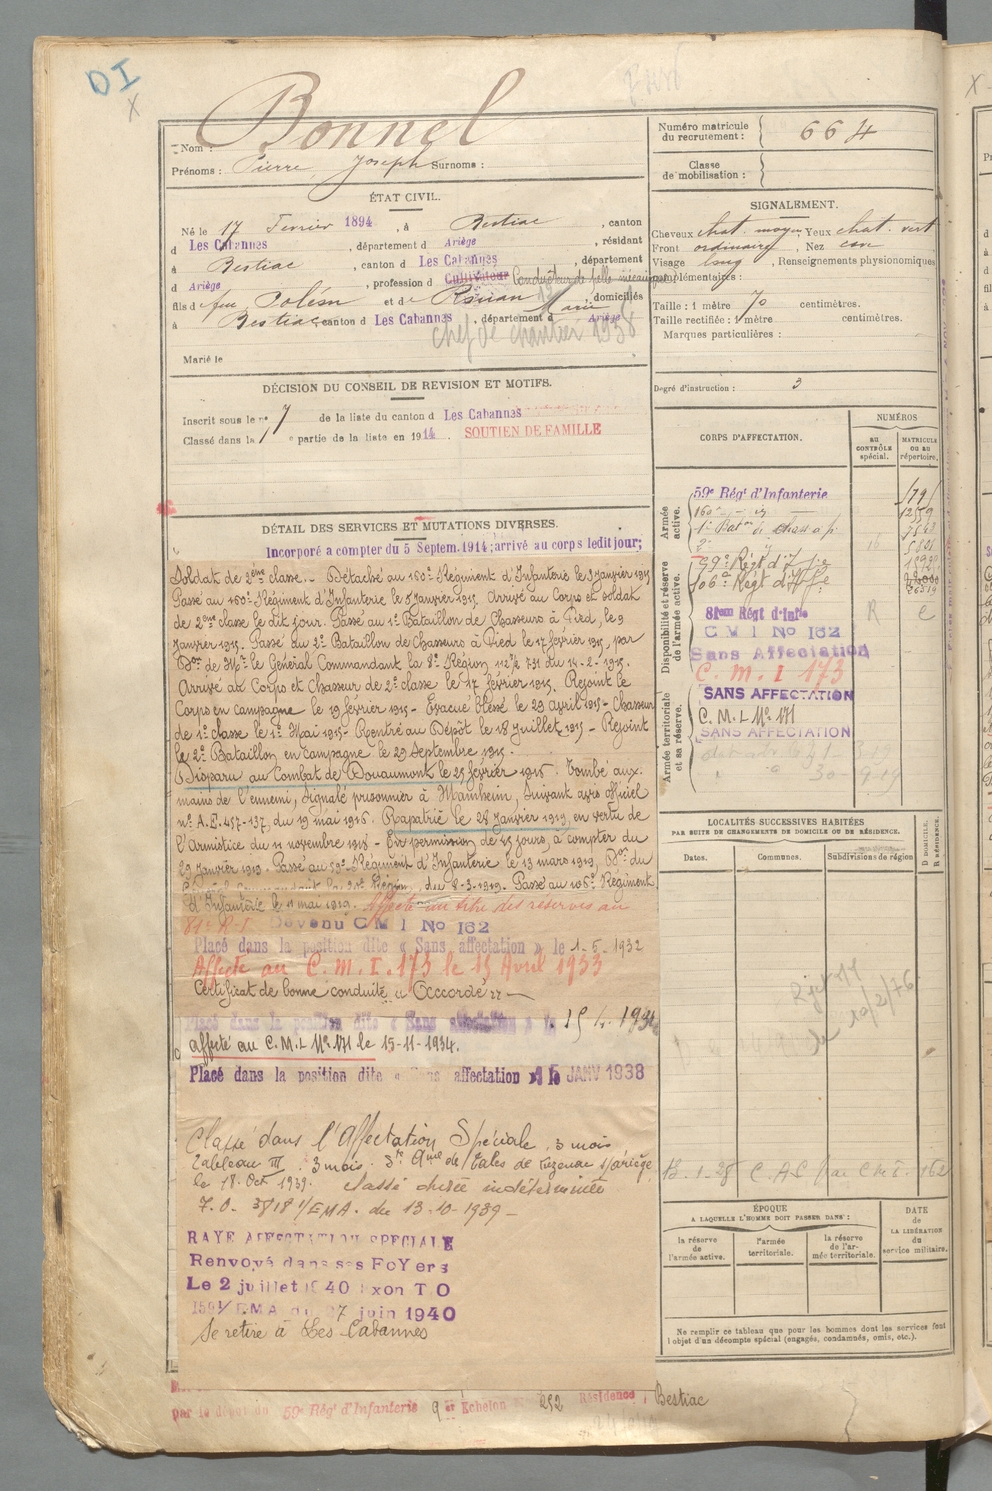 DI
X
Bonnel
Nom :
Prénoms : Pierre, Joseph Surnoms :
Numéro matricule du recrutement : 664
Classe de mobilisation :
ÉTAT CIVIL.
Né le 17 Fevrier 1894, à Bestiac, canton
d Les Cabannes, département d Ariège, résidant
à Bestiac, canton d Les Cabannes, département
d Ariège, profession d Cultivateur Conducteur de pelle mécanique
fils d feu Polésn et de Rouan Marie, domiciliés
à Bestiac, canton d Les Cabannes, département d Ariège
chef de chantier 1938
Marié le
SIGNALEMENT.
Cheveux chat. moyen Yeux chat. vert
Front ordinaire, Nez cave
Visage long, Renseignements physionomiques
complémentaires :
Taille : 1 mètre 70 centimètres.
Taille rectifiée : 1 mètre centimètres.
Marques particulières :
Degré d'instruction : 3
DÉCISION DU CONSEIL DE REVISION ET MOTIFS.
Inscrit sous le n° 7 de la liste du canton d Les Cabannes
Classé dans la 1 e partie de la liste en 1914. SOUTIEN DE FAMILLE
DÉTAIL DES SERVICES ET MUTATIONS DIVERSES.
Incorporé a compter du 5 Septem. 1914; arrivé au corps ledit jour;
Soldat de 2ème classe. - Détaché au 160e Régiment d'Infanterie le 5 Janvier 1915
Passé au 160e Régiment d'Infanterie le 5 Janvier 1915. Arrivé au Corps et soldat
de 2ème classe le dit jour. Passé au 1er Bataillon de Chasseurs à Pied, le 9
Janvier 1915. Passé au 2e Bataillon de Chasseurs à Pied le 17 février 1915, par
Don de Mr le Général Commandant la 8e Région 112 1/2 731 du 14-2-1915.
Arrivé au Corps et Chasseur de 2e classe le 17 février 1915. Rejoint le
Corps en campagne le 19 février 1915 - Evacué blessé le 29 avril 1915 - Chasseur
de 1e classe le 1er Mai 1915 - Rentré au Dépôt le 18 Juillet 1915 - Rejoint
le 2e Bataillon en Campagne le 29 Septembre 1915.
Disparu au Combat de Douaumont le 25 février 1916. Tombé aux
mains de l'ennemi, signalé prisonnier à Manheim, suivant avis officiel
n° A.E. 457-137, du 19 mai 1916. Rapatrié le 28 Janvier 1919, en vertu de
l'Armistice du 11 novembre 1918 - En permission de 45 jours, à compter du
29 Janvier 1919. Passé au 59e Régiment d'Infanterie le 13 mars 1919, Don du
Région, du 2-3-1919. Passé au 106e Régiment
d'Infanterie le 11 mai 1919. Affecté au titre des réserves au
81e R.I. Devenu C M I No 162
Placé dans la position dite « Sans affectation » le 1-5-1932
Affecté au C.M.I. 173 le 15 Avril 1933
Certificat de bonne conduite « Accordé »
Placé dans la position dite « Sans affectation » le
affecté au C.M.I. No 171 le 15-11-1934.
Placé dans la position dite « Sans affectation » le 15 JANV 1938
Classé dans l'Affectation Spéciale, 3 mois
Tableau III. 3 mois. Sté Ame de Talcs de Luzenac s/ariège
le 18. Oct 1939. classé durée indéterminée
T.O. 3818 1/EMA. du 13-10-1939 -
RAYE AFFECTATION SPECIALE
Renvoyé dans ses FoYers
Le 2 juillet 1940 Exon T O
1591/EMA du 27 juin 1940
Se retire à Les Cabannes
par le dépot du 59e Rég't d'Infanterie 9 er Echelon 252 Résidence : Bestiac
CORPS D'AFFECTATION.
NUMÉROS
au contrôle spécial.
MATRICULE ou au répertoire.
Armée active.
59e Rég't d'Infanterie
160e
1er Baton de Chass à p.
2e
Disponibilité et réserve de l'armée active.
59e Régt d'Infie
106e Régt d'Infie
81eme Régt d'Infie R e
C M I No 162
Sans Affectation
C. M. I 173
Armée territoriale et sa réserve.
SANS AFFECTATION
C. M. I. No 171
SANS AFFECTATION
LOCALITÉS SUCCESSIVES HABITÉES
PAR SUITE DE CHANGEMENTS DE DOMICILE OU DE RÉSIDENCE.
Dates.
Communes.
Subdivisions de région
D DOMICILE.
R RÉSIDENCE.
13-1-28 C.A.C par C M I. 162
ÉPOQUE
A LAQUELLE L'HOMME DOIT PASSER DANS :
DATE de LA LIBÉRATION du service militaire.
la réserve de l'armée active.
l'armée territoriale.
la réserve de l'armée territoriale.
Ne remplir ce tableau que pour les hommes dont les services font
l'objet d'un décompte spécial (engagés, condamnés, omis, etc.).